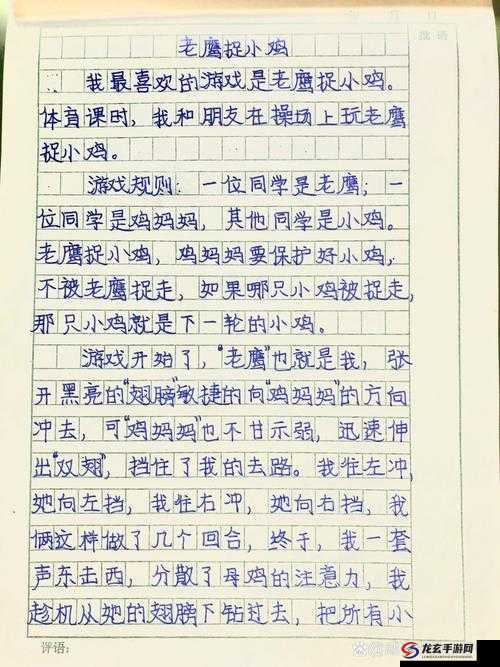 批语
老鹰捉小鸡
我最喜欢的游戏是老鹰捉小鸡。
体育课时，我和朋友在操场上玩老鹰
捉小鸡。
游戏规则：一位同学是老鹰；一
位同学是鸡妈妈，其他同学是小鸡。
老鹰捉小鸡，鸡妈妈要保护好小鸡，
不被老鹰捉走，如果哪只小鸡被捉走，
那只小鸡就是下一轮的小鸡。
游戏开始了，“老鹰”也就是我，张
开黑亮的“翅膀”敏捷的向“鸡妈妈”的方向
冲去，可“鸡妈妈”也不甘示弱，迅速伸
出“双翅”，挡住了我的去路。我往左冲，
她向左挡，我往右冲，她向右挡，我
俩这样做了几个回合，终于，我一套
声东击西，分散了母鸡的注意力，我
趁机从她的翅膀下钻过去，把所有小
评语：
龙玄手游网